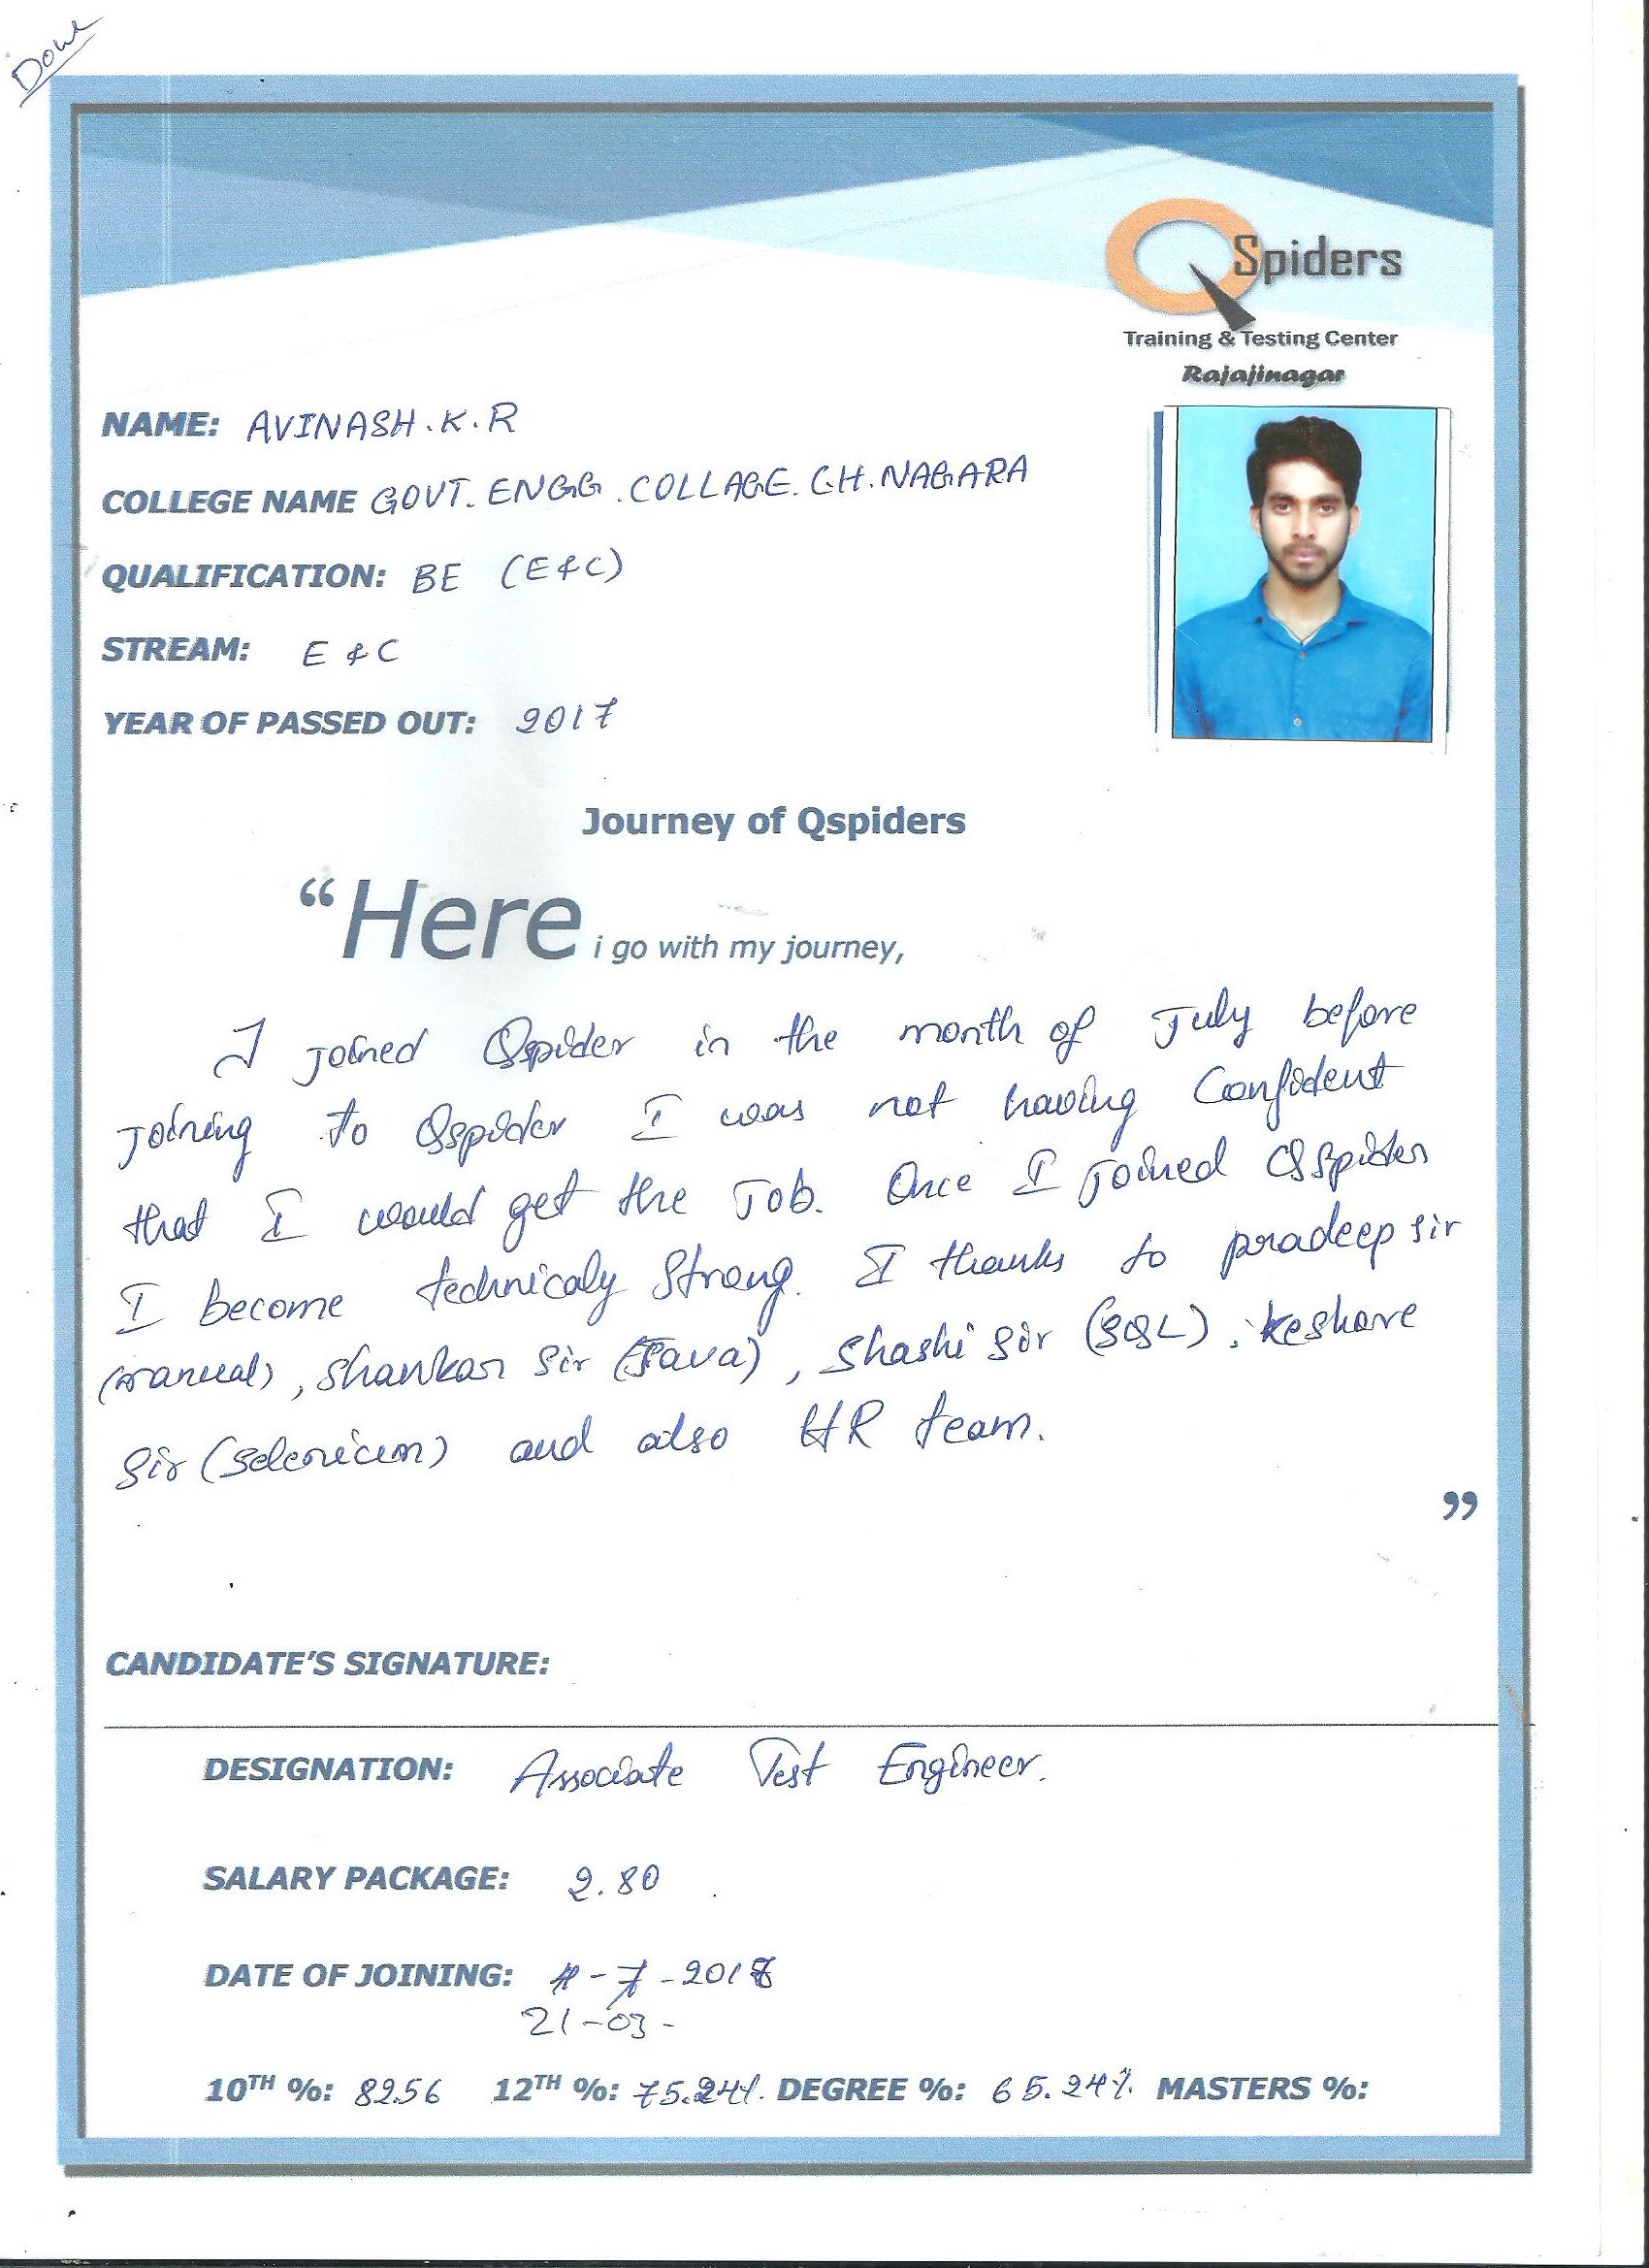 Done
QSpiders
Training & Testing Center
Rajajinagar
NAME: AVINASH.K.R
COLLEGE NAME GOVT. ENGG. COLLAGE. CH. NAGARA
QUALIFICATION: BE (E&C)
STREAM: E & C
YEAR OF PASSED OUT: 2017
Journey of Qspiders
“Here i go with my journey,
I joined Qspider in the month of July before
Joining to Qspider I was not having Confident
that I would get the Job. Once I joined QSpider
I become technicaly Strong. I thanks to pradeep sir
(manual), Shankar Sir (Java), Shashi Sir (SQL), keshave
Sir (Selenium) and also HR team.
”
CANDIDATE'S SIGNATURE:
DESIGNATION: Associate Test Engineer.
SALARY PACKAGE: 2.80
DATE OF JOINING: - 7 - 2018
21-03-
10TH %: 82.56 12TH %: 75.24%. DEGREE %: 65.24%. MASTERS %: